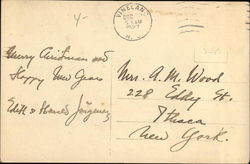 4-
VINELAND
DEC
N.J.
Merry Christmas and
Happy New Year
Edith & Jörgensen
Mrs. A. M. Wood
228 Eddy St.
Ithaca
New York.